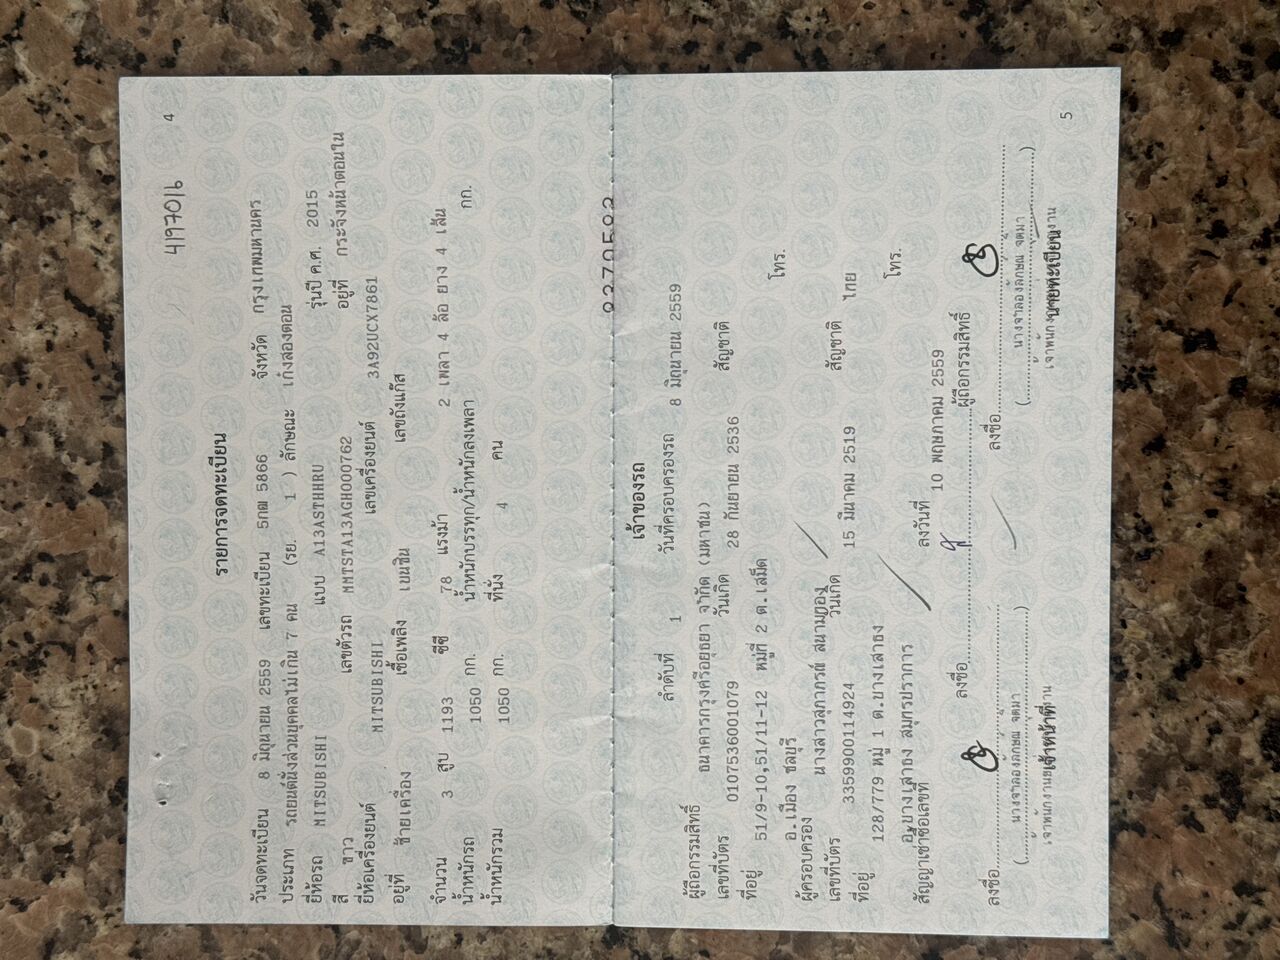 4
4197016
รายการจดทะเบียน
วันจดทะเบียน 8 มิถุนายน 2559 เลขทะเบียน 5กฒ 5866 จังหวัด กรุงเทพมหานคร
ประเภท รถยนต์นั่งส่วนบุคคลไม่เกิน 7 คน (รย. 1 ) ลักษณะ เก๋งสองตอน
ยี่ห้อรถ MITSUBISHI แบบ A13ASTHHRU รุ่นปี ค.ศ. 2015
สี ขาว เลขตัวรถ MMSTA13AGH000762 อยู่ที่ กระจังหน้าตอนใน
ยี่ห้อเครื่องยนต์ MITSUBISHI เลขเครื่องยนต์ 3A92UCX7861
อยู่ที่ ซ้ายเครื่อง เชื้อเพลิง เบนซิน เลขถังแก๊ส
จำนวน 3 สูบ 1193 ซีซี 78 แรงม้า 2 เพลา 4 ล้อ ยาง 4 เส้น
น้ำหนักรถ 1050 กก. น้ำหนักบรรทุก/น้ำหนักลงเพลา กก.
น้ำหนักรวม 1050 กก. ที่นั่ง 4 คน
เจ้าของรถ
ลำดับที่ 1 วันที่ครอบครองรถ 8 มิถุนายน 2559
ผู้ถือกรรมสิทธิ์ ธนาคารกรุงศรีอยุธยา จำกัด (มหาชน)
เลขที่บัตร 0107536001079 วันเกิด 28 กันยายน 2536 สัญชาติ
ที่อยู่ 51/9-10,51/11-12 หมู่ที่ 2 ต.เสม็ด
อ.เมือง ชลบุรี โทร.
ผู้ครอบครอง นางสาวสุภาภรณ์ สนามทอง
เลขที่บัตร 3359900114924 วันเกิด 15 มีนาคม 2519 สัญชาติ ไทย
ที่อยู่ 128/779 หมู่ 1 ต.บางเสาธง
อ.บางเสาธง สมุทรปราการ โทร.
สัญญาเช่าซื้อเลขที่ ลงวันที่ 10 พฤษภาคม 2559
ลงชื่อ ผู้ถือกรรมสิทธิ์
ลงชื่อ ลงชื่อ
(นางจำลองลักษณ์ จุตมา) (นางจำลองลักษณ์ จุตมา)
เจ้าหน้าที่ นายทะเบียน
5